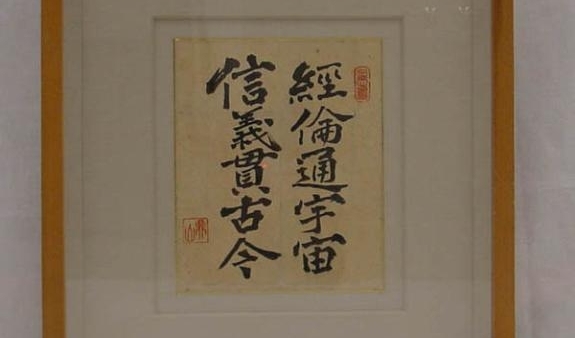 經倫通宇宙
信義貫古今